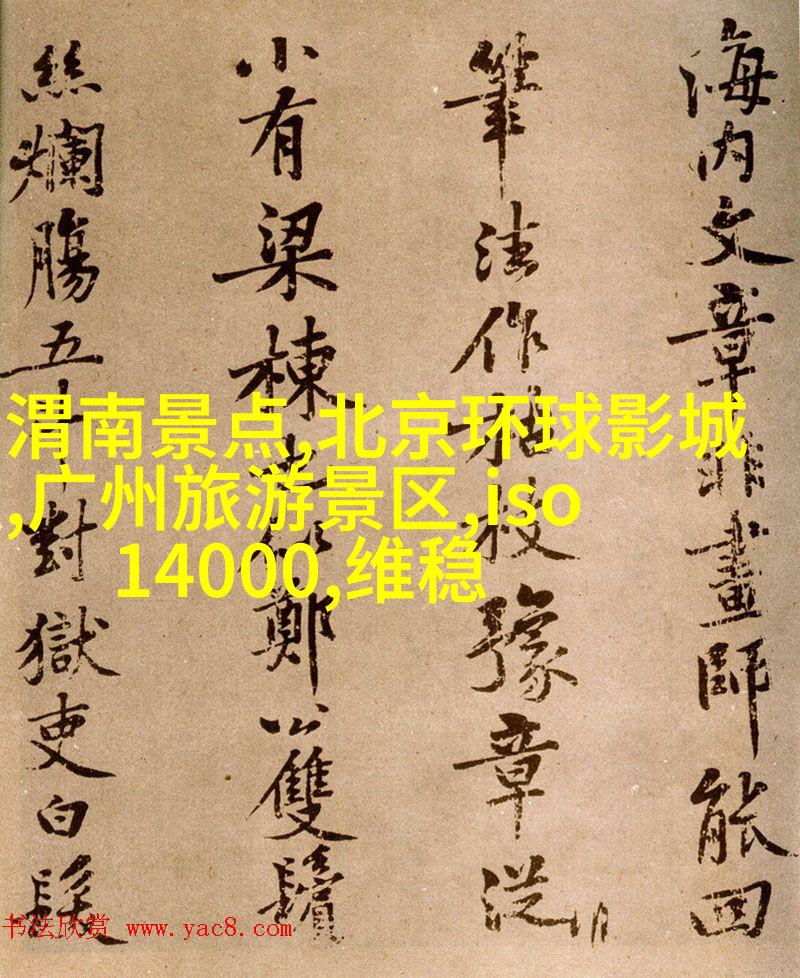 海内文章非畫師能回
筆法作枯枝豫章從
小有梁棟也似鄭公雙鬢
絲爛腸五斗對獄吏白髮
渭南景点,北京环球影城
,广州旅游景区,iso
14000,维稳
书法欣赏 www.yac8.com